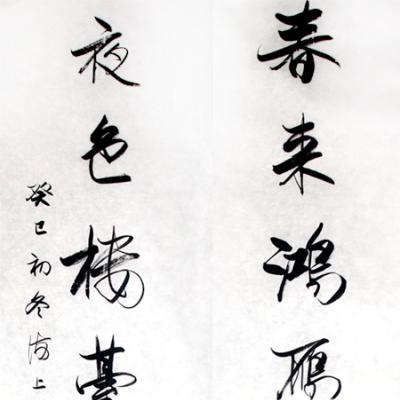 春来鸿雁
夜色楼台
癸巳初冬海上